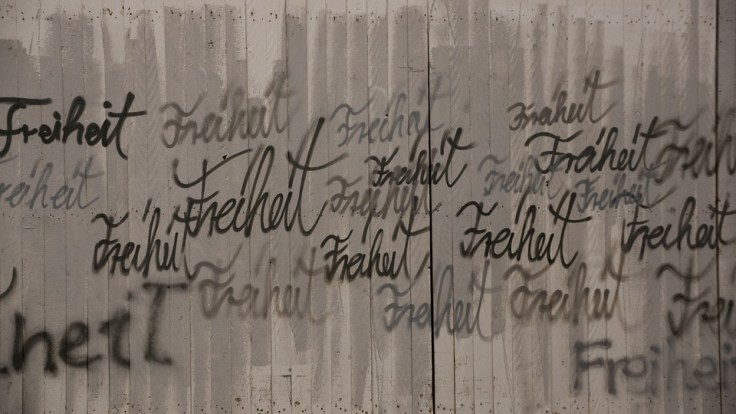 Freiheit Freiheit Freiheit Freiheit
Freiheit Freiheit Freih
reiheit Freiheit Freiheit Freiheit Freiheit
Freiheit Freiheit Freiheit Freiheit
Freiheit Freiheit Freiheit Frei
heiT Freihei